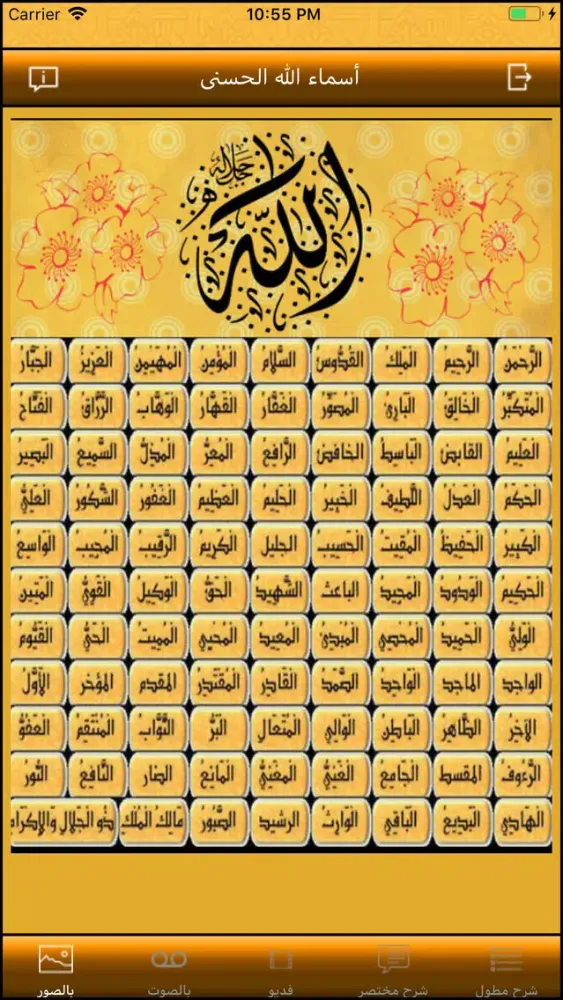 Carrier 10:55 PM
أسماء الله الحسنى
الله جل جلاله
الرَّحْمَنُ الرَّحِيمُ الْمَلِكُ الْقُدُّوسُ السَّلَامُ الْمُؤْمِنُ الْمُهَيْمِنُ الْعَزِيزُ الْجَبَّارُ
الْمُتَكَبِّرُ الْخَالِقُ الْبَارِئُ الْمُصَوِّرُ الْغَفَّارُ الْقَهَّارُ الْوَهَّابُ الرَّزَّاقُ الْفَتَّاحُ
الْعَلِيمُ الْقَابِضُ الْبَاسِطُ الْخَافِضُ الرَّافِعُ الْمُعِزُّ الْمُذِلُّ السَّمِيعُ الْبَصِيرُ
الْحَكَمُ الْعَدْلُ اللَّطِيفُ الْخَبِيرُ الْحَلِيمُ الْعَظِيمُ الْغَفُورُ الشَّكُورُ الْعَلِيُّ
الْكَبِيرُ الْحَفِيظُ الْمُقِيتُ الْحَسِيبُ الْجَلِيلُ الْكَرِيمُ الرَّقِيبُ الْمُجِيبُ الْوَاسِعُ
الْحَكِيمُ الْوَدُودُ الْمَجِيدُ الْبَاعِثُ الشَّهِيدُ الْحَقُّ الْوَكِيلُ الْقَوِيُّ الْمَتِينُ
الْوَلِيُّ الْحَمِيدُ الْمُحْصِي الْمُبْدِئُ الْمُعِيدُ الْمُحْيِي الْمُمِيتُ الْحَيُّ الْقَيُّومُ
الْوَاجِدُ الْمَاجِدُ الْوَاحِدُ الصَّمَدُ الْقَادِرُ الْمُقْتَدِرُ الْمُقَدِّمُ الْمُؤَخِّرُ الْأَوَّلُ
الْآخِرُ الظَّاهِرُ الْبَاطِنُ الْوَالِي الْمُتَعَالِ الْبَرُّ التَّوَّابُ الْمُنْتَقِمُ الْعَفُوُّ
الرَّءُوفُ الْمُقْسِطُ الْجَامِعُ الْغَنِيُّ الْمُغْنِيُّ الْمَانِعُ الضَّارُ النَّافِعُ النُّورُ
الْهَادِي الْبَدِيعُ الْبَاقِي الْوَارِثُ الرَّشِيدُ الصَّبُورُ مَالِكُ الْمُلْكِ ذُو الْجَلَالِ وَالْإِكْرَامِ
شرح مطول شرح مختصر فديو بالصوت بالصور